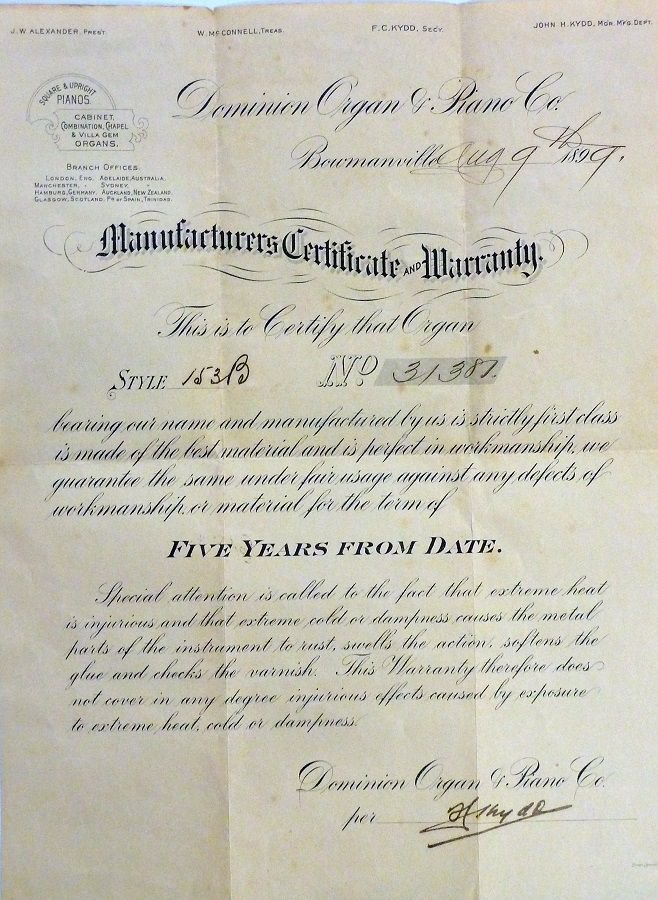 J.W. ALEXANDER, PREST. W. MCCONNELL, TREAS. F.C. KYDD, SECY. JOHN H. KYDD, MGR. MFG. DEPT.
SQUARE & UPRIGHT
PIANOS.
CABINET,
COMBINATION, CHAPEL
& VILLA GEM
ORGANS.
BRANCH OFFICES.
LONDON, ENG. ADELAIDE, AUSTRALIA.
MANCHESTER, " SYDNEY, "
HAMBURG, GERMANY. AUCKLAND, NEW ZEALAND.
GLASGOW, SCOTLAND. PT OF SPAIN, TRINIDAD.
Dominion Organ & Piano Co.
Bowmanville Aug 9th 1899.
Manufacturers Certificate AND Warranty.
This is to Certify that Organ
STYLE 153B No 31387.
bearing our name and manufactured by us is strictly first class
is made of the best material and is perfect in workmanship, we
guarantee the same under fair usage against any defects of
workmanship, or material for the term of
FIVE YEARS FROM DATE.
Special attention is called to the fact that extreme heat
is injurious and that extreme cold or dampness causes the metal
parts of the instrument to rust, swells the action, softens the
glue and checks the varnish. This Warranty therefore does
not cover in any degree injurious effects caused by exposure
to extreme heat, cold or dampness.
Dominion Organ & Piano Co.
per